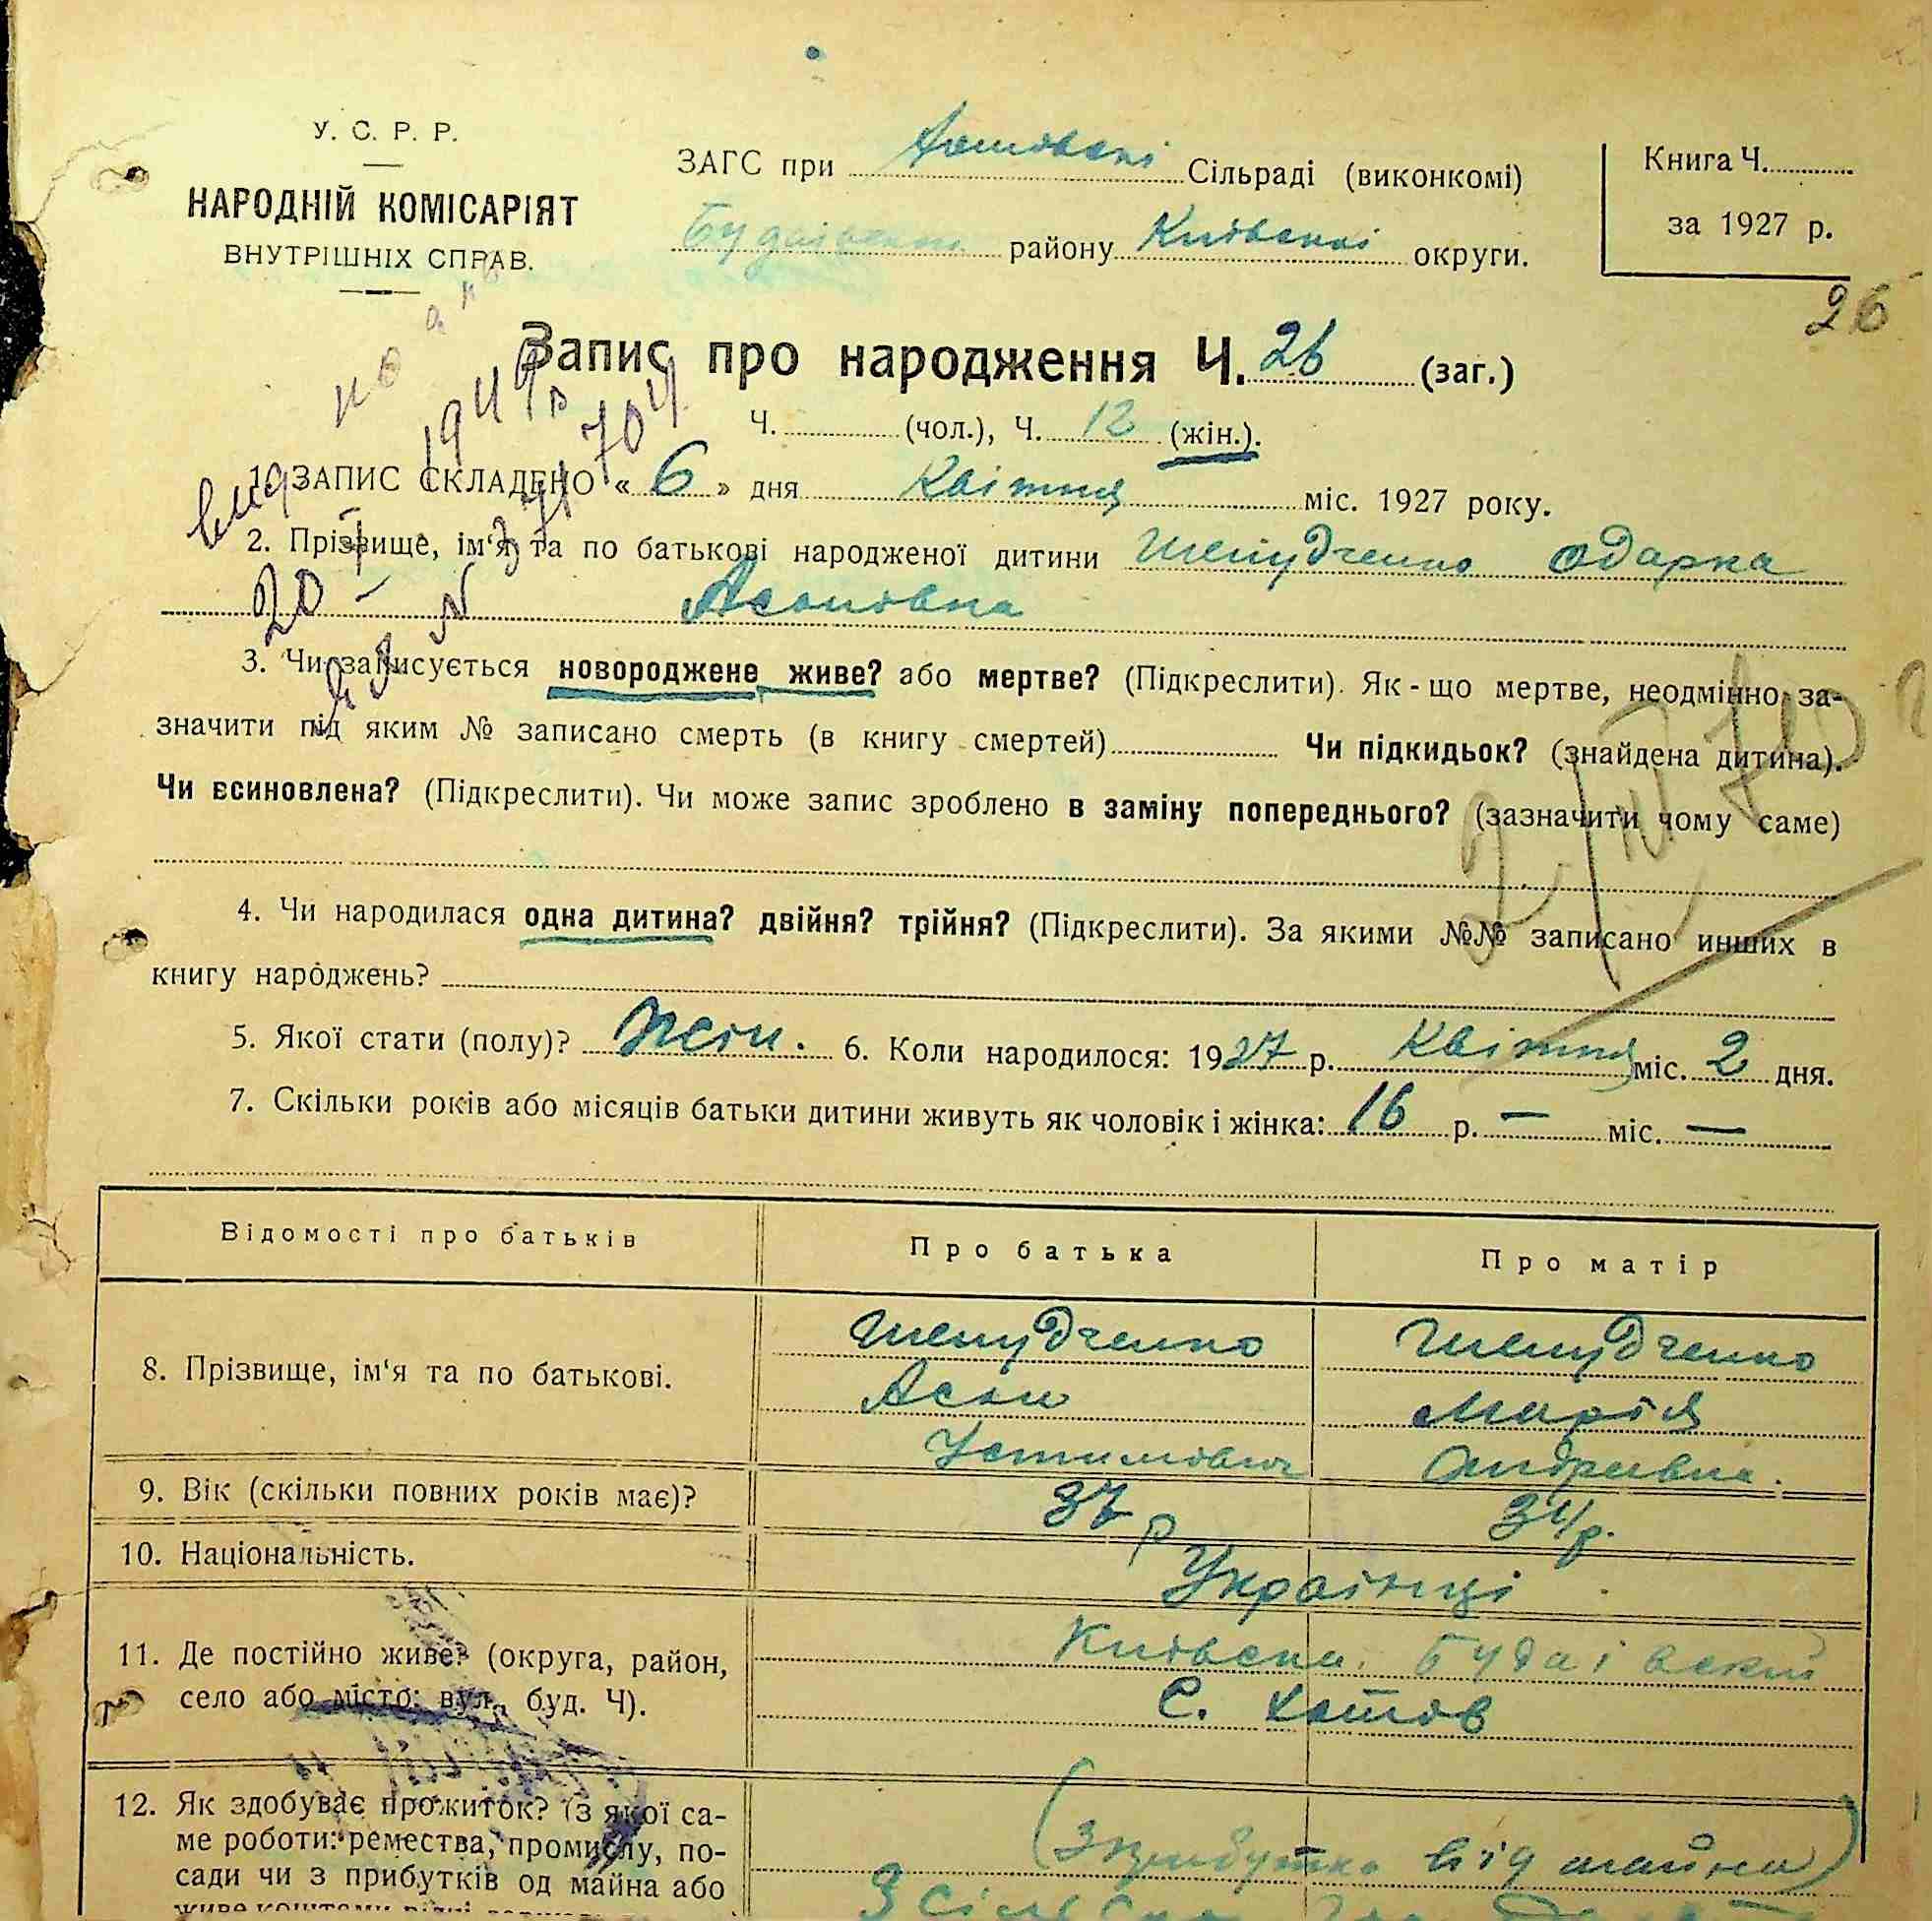 У. С. Р. Р.
НАРОДНІЙ КОМІСАРІЯТ
ВНУТРІШНІХ СПРАВ.
ЗАГС при Хотівські Сільраді (виконкомі)
Будаївськ району Київські округи.
Книга Ч.
за 1927 р.
26
Запис про народження Ч. 26 (заг.)
Ч. (чол.), Ч. 12 (жін.).
1. ЗАПИС СКЛАДЕНО « 6 » дня Квітня міс. 1927 року.
2. Прізвище, ім‘я та по батькові народженої дитини Шелудченко Одарка
3. Чи записується новороджене живе? або мертве? (Підкреслити). Як-що мертве, неодмінно за-
значити під яким № записано смерть (в книгу смертей) Чи підкидьок? (знайдена дитина).
Чи всиновлена? (Підкреслити). Чи може запис зроблено в заміну попереднього? (зазначити чому саме)
4. Чи народилася одна дитина? двійня? трійня? (Підкреслити). За якими №№ записано инших в
книгу народжень?
5. Якої стати (полу)? Жін. 6. Коли народилося: 1927 р. Квітня міс. 2 дня.
7. Скільки років або місяців батьки дитини живуть як чоловік і жінка: 16 р. — міс. —
Відомості про батьків Про батька Про матір
8. Прізвище, ім‘я та по батькові. Шелудченко Шелудченко
Марія
Устимович Андріївна.
9. Вік (скільки повних років має)? 37 р 34 р.
10. Національність. Українці
11. Де постійно живе? (округа, район, Київська. Будаівский
село або місто: вул., буд. Ч). С. Хотів
12. Як здобуває прожиток? (з якої са-
ме роботи: ремества, промислу, по- (з прибутка від майна)
сади чи з прибутків од майна або
живе коштами